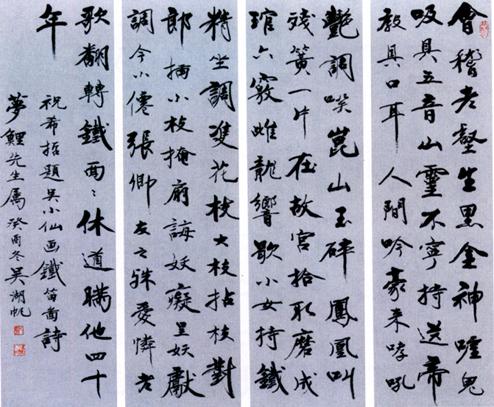 會稽老壑生黑金神嘘鬼
吸具五音山靈不寧持送帝
教具口耳人間吟豪来哮吼
艷調喚崑山玉碎鳳凰叫
殘簧一片在故宮拾取磨成
琯六竅雌龍響歇小女持鐵
精坐調雙花枝大枝拈枝對
郎摘小枝掩脣誨妖癡呈妖獻
調今小僊張卿友之殊愛憐老
歌翻轉鐵面〻休道瞞他四十
年
祝希哲題吳小仙画鐵笛啚詩
夢鯉先生屬 癸酉冬吳湖帆